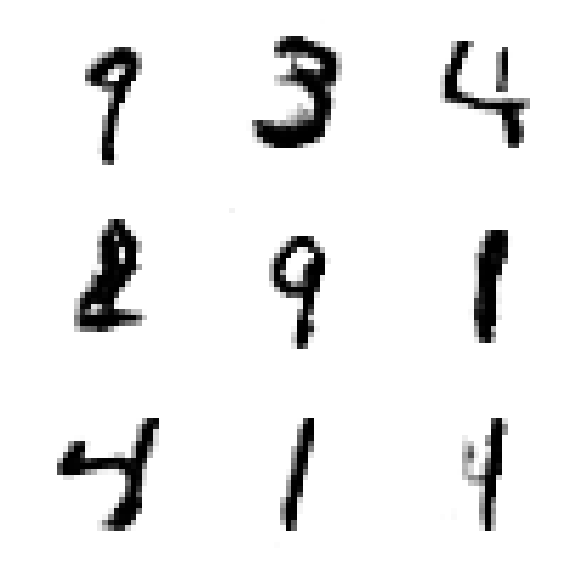 9 3 4
2 9 1
4 1 4